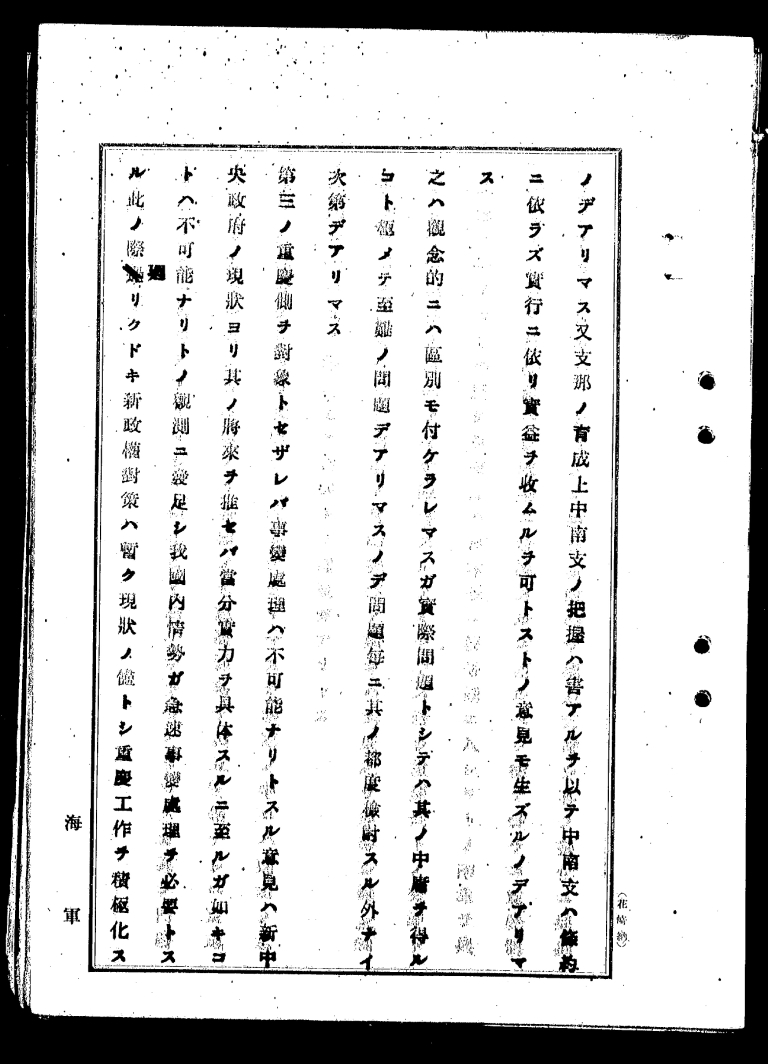 ノデアリマス又支那ノ育成上中南支ノ把握ハ害アルヲ以テ中南支ハ條約
ニ依ラズ實行ニ依リ實益ヲ收ムルヲ可トストノ意見モ生ズルノデアリマ
ス
之ハ觀念的ニハ區別モ付ケラレマスガ實際問題トシテハ其ノ中庸ヲ得ル
コト極メテ至難ノ問題デアリマスノデ問題每ニ其ノ都度檢討スル外ナイ
次第デアリマス
第三ノ重慶側ヲ對象トセザレバ事變處理ハ不可能ナリトスル意見ハ新中
央政府ノ現狀ヨリ其ノ將來ヲ推セバ當分實力ヲ具体スルニ至ルガ如キコ
トハ不可能ナリトノ觀測ニ發足シ我國內情勢ガ急速事變處理ヲ必要トス
ル此ノ際廻リクドキ新政權對策ハ暫ク現狀ノ儘トシ重慶工作ヲ積極化ス
海軍